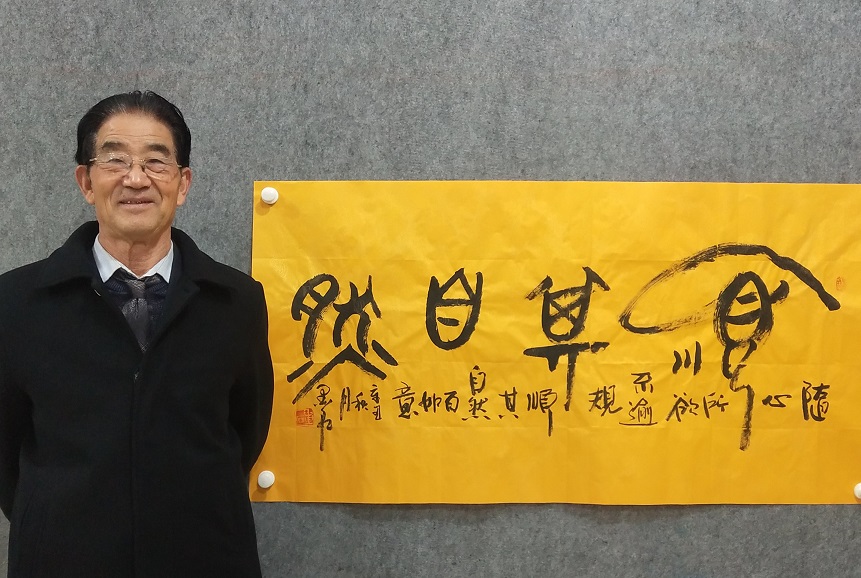 順其自然
隨心所欲不逾規順其自然百如意
辛丑秋月